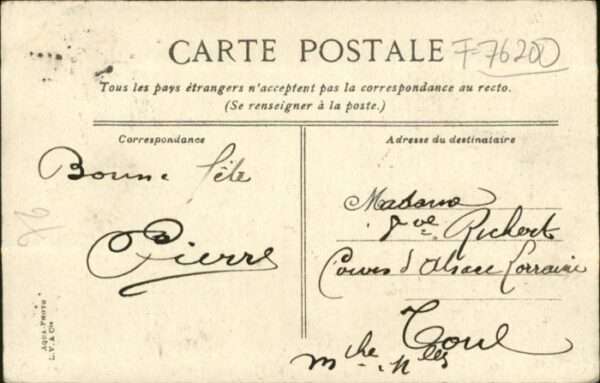 CARTE POSTALE
F-76200
Tous les pays étrangers n'acceptent pas la correspondance au recto.
(Se renseigner à la poste.)
Correspondance
Bonne fête
Pierre
76
AQUA-PHOTO
L.V. & Cie
Adresse du destinataire
Madame
Vve Richert
Cours d'Alsace Lorraine
Toul
Mthe Mlles